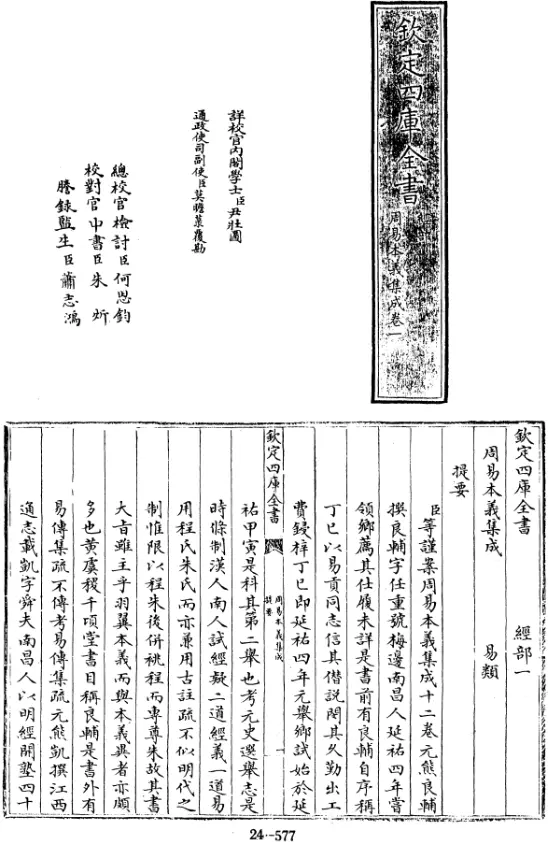 欽定四庫全書
周易本義集成卷一
詳校官內閣學士臣尹壯圖
通政使司副使臣莫瞻菉覆勘
總校官檢討臣何思鈞
校對官中書臣朱炘
謄錄監生臣蕭志鴻
欽定四庫全書 經部一
周易本義集成 易類
提要
臣等謹案周易本義集成十二卷元熊良輔
撰良輔字任重號梅邊南昌人延祐四年嘗
領鄉薦其仕履未詳是書前有良輔自序稱
丁巳以易貢同志信其僣說閔其久勤出工
費鋟梓丁巳即延祐四年元舉鄉試始於延
欽定四庫全書
周易本義集成
提要
一
祐甲寅是科其第二舉也考元史選舉志是
時條制漢人南人試經疑二道經義一道易
用程氏朱氏而亦兼用古註疏不似明代之
制惟限以程朱後併祧程而專尊朱故其書
大旨雖主乎羽翼本義而與本義異者亦頗
多也黃虞稷千頃堂書目稱良輔是書外有
易傳集疏不傳考易傳集疏元熊凱撰江西
通志載凱字舜夫南昌人以明經開塾四十
24-577